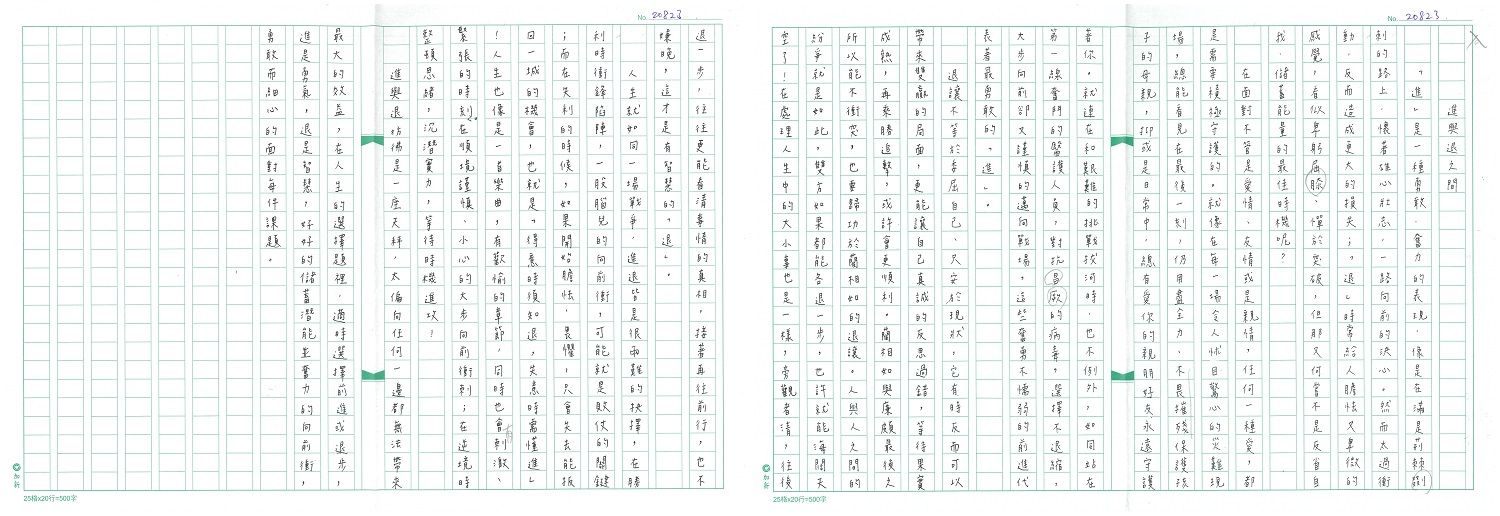 No. 20823
進與退之間
「進」是一種勇敢、奮力的表現，像是在滿是荊棘
刺的路上，懷著雄心壯志，一路向前的決心。然而太過衝
動，反而造成更大的損失；「退」時常給人膽怯又卑微的
感覺，看似卑躬屈膝，憚於突破，但那又何嘗不是反省自
我、儲蓄能量的最佳時機呢？
在面對不管是愛情、友情或是親情，任何一種愛，都
是需要積極守護的。就像在每一場令人怵目驚心的災難現
場，總能看見在最後一刻，仍用盡全力、不畏摧殘保護孩
子的母親，抑或是日常中，總有愛你的親朋好友永遠守護
著你。就連在和艱難的挑戰拔河時，也不例外，如同站在
第一線奮鬥的醫護人員，對抗昌厥的病毒，選擇不退縮，
大步向前卻又謹慎的邁向戰場，這些奮勇不懦弱的前進代
表著最勇敢的「進」。
退讓不等於委屈自己、只安於現狀，它有時反而可以
帶來雙贏的局面，更能讓自己真誠的反思過錯，等待果實
成熟，再乘勝追擊，或許會更順利。藺相如與廉頗最後之
所以能不衝突，也要歸功於藺相如的退讓。人與人之間的
紛爭就是如此，雙方如果都能各退一步，也許就能海闊天
空了！在處理人生中的大小事也是一樣，旁觀者清，往後
No. 20823
退一步，往往更能看清事情的真相，接著再往前行，也不
嫌晚，這才是有智慧的「退」。
人生就如同一場戰爭，進退皆是很兩難的抉擇，在勝
利時衝鋒陷陣，一股腦兒的向前衝，可能就是敗仗的關鍵
；而在失利的時候，如果開始膽怯、畏懼，只會失去能扳
回一城的機會，也就是「得意時須知退，失意時需懂進」
！人生也像是一首樂曲，有歡愉的章節，同時也會有刺激、
緊張的時刻。在順境謹慎、小心的大步向前衝刺；在逆境時
整頓思緒，沉潛實力，等待時機進攻！
進與退彷彿是一座天秤，太偏向任何一邊都無法帶來
最大的效益，在人生的選擇題裡，適時選擇前進或退步，
進是勇氣，退是智慧，好好的儲蓄潛能並奮力的向前衝，
勇敢而細心的面對每件課題。
25格x20行=500字
25格x20行=500字